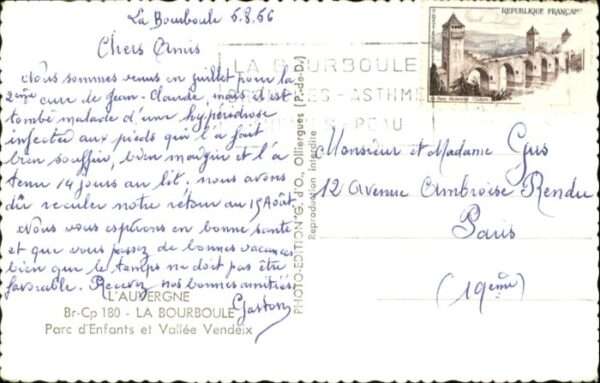 La Bourboule 6.8.56
Chers Amis
Nous sommes venus en juillet pour la
2ème cure de Jean-Claude, mais il est
tombé malade d'une hypidrose
infectée aux pieds qui l'a fait
bien souffrir, bien maigrir et l'a
tenu 14 jours au lit, nous avons
dû reculer notre retour au 15 Août.
Nous vous espérons en bonne santé
et que vous passez de bonnes vacances
bien que le temps ne doit pas être
favorable. Recevez nos bonnes amitiés
Gaston
L'AUVERGNE
Br-Cp 180 - LA BOURBOULE
Parc d'Enfants et Vallée Vendeix
PHOTO-EDITION "G. d'O., Olliergues (P.-de-D.)
Reproduction interdite
LA BOURBOULE
- ASTHME
PEAU
REPUBLIQUE FRANÇAISE
Monsieur et Madame Gus
12 Avenue Ambroise Rendu
Paris
(19ème)